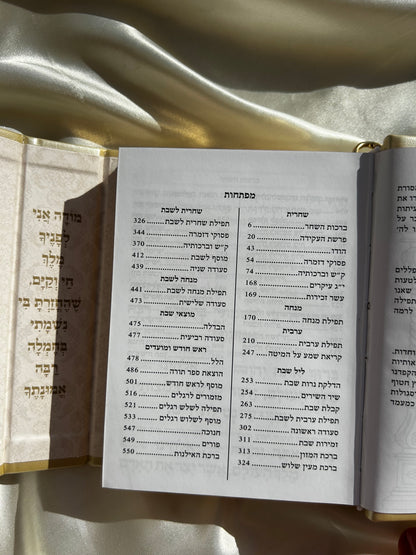 מפתחות
שחרית
ברכות השחר 6
פרשת העקידה 20
הודו 43
פסוקי דזמרה 54
ק״ש וברכותיה 74
י״ג עיקרים 168
עשר זכירות 169
מנחה
תפילת מנחה 170
ערבית
תפילת ערבית 210
קריאת שמע על המיטה 247
ליל שבת
הדלקת נרות שבת 253
שיר השירים 254
קבלת שבת 264
תפילת ערבית לשבת 275
סעודה ראשונה 302
זמירות שבת 311
ברכת המזון 313
ברכת מעין שלוש 324
שחרית לשבת
תפילת שחרית לשבת 326
פסוקי דזמרה 344
ק״ש וברכותיה 370
מוסף לשבת 412
סעודה שניה 439
מנחה לשבת
תפילת מנחה לשבת 441
סעודה שלישית 473
מוצאי שבת
הבדלה 475
סעודה רביעית 477
ראש חודש ומועדים
הלל 478
הוצאת ספר תורה 486
מוסף לראש חודש 501
מזמורים לרגלים 516
תפילה לשלש רגלים 521
מוסף לשלוש רגלים 533
חנוכה 547
פורים 549
ברכת האילנות 550
מודה אני
לפניך
מלך
חי וקים,
שהחזרת בי
נשמתי
בחמלה
רבה
אמונתך